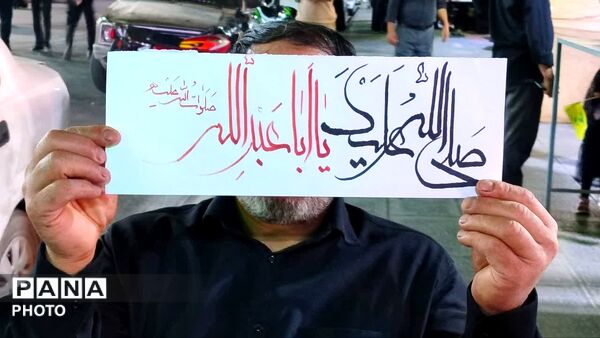 صلی اللهُ عَلَیکَ یا أَبا عَبْدِ اللّه صَلَواتُ اللهِ عَلَیه
PANA
PHOTO